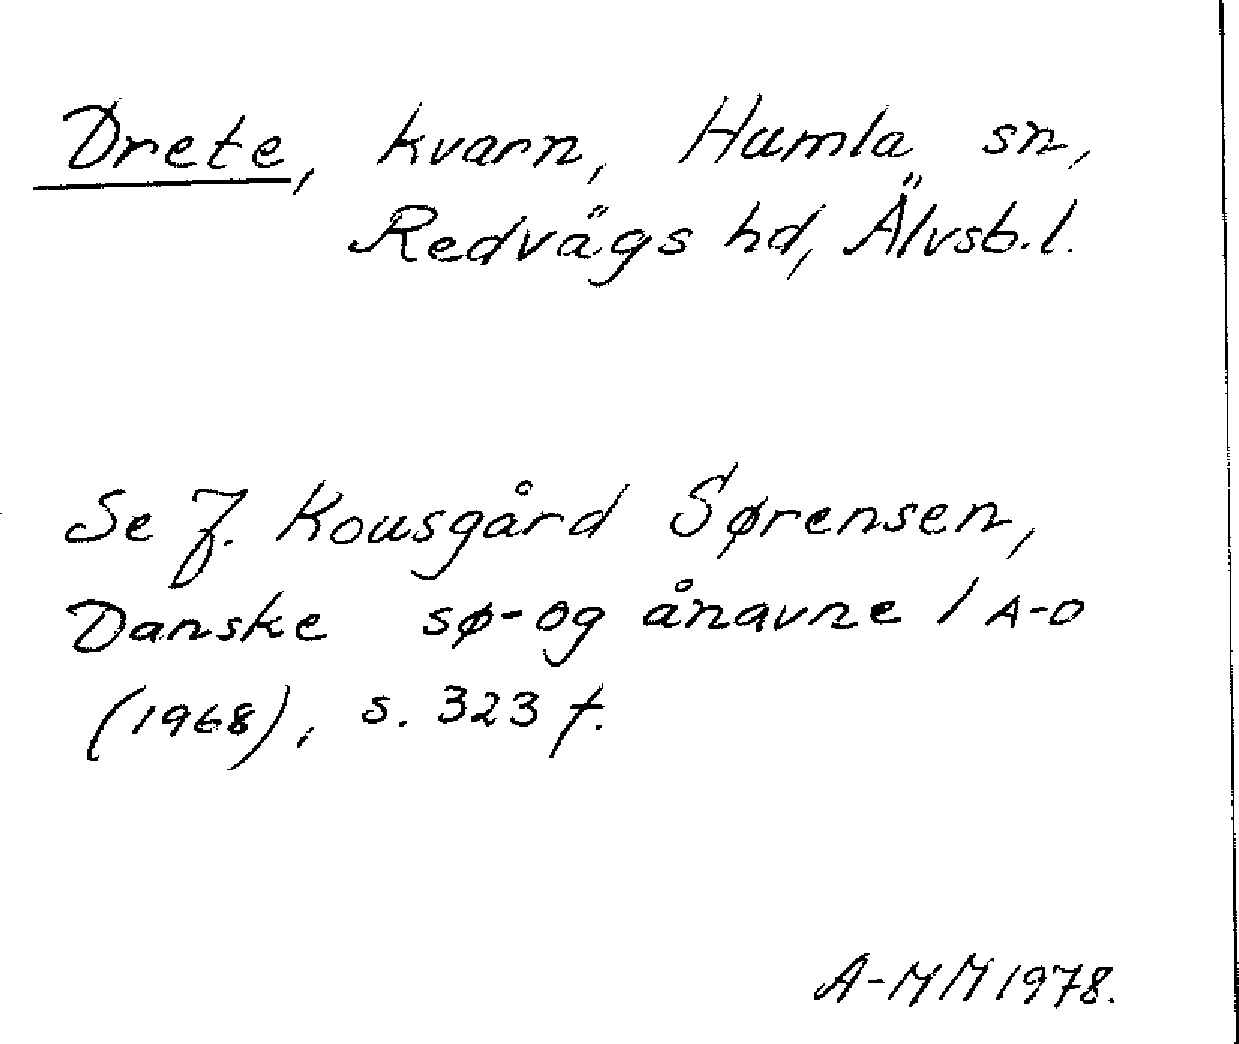 Drete, kvarn, Humla sn,
Redvägs hd, Älvsb.l.
Se J. Kousgård Sørensen,
Danske sø- og ånavne 1 A-O
(1968), s. 323 f.
A-MM 1978.